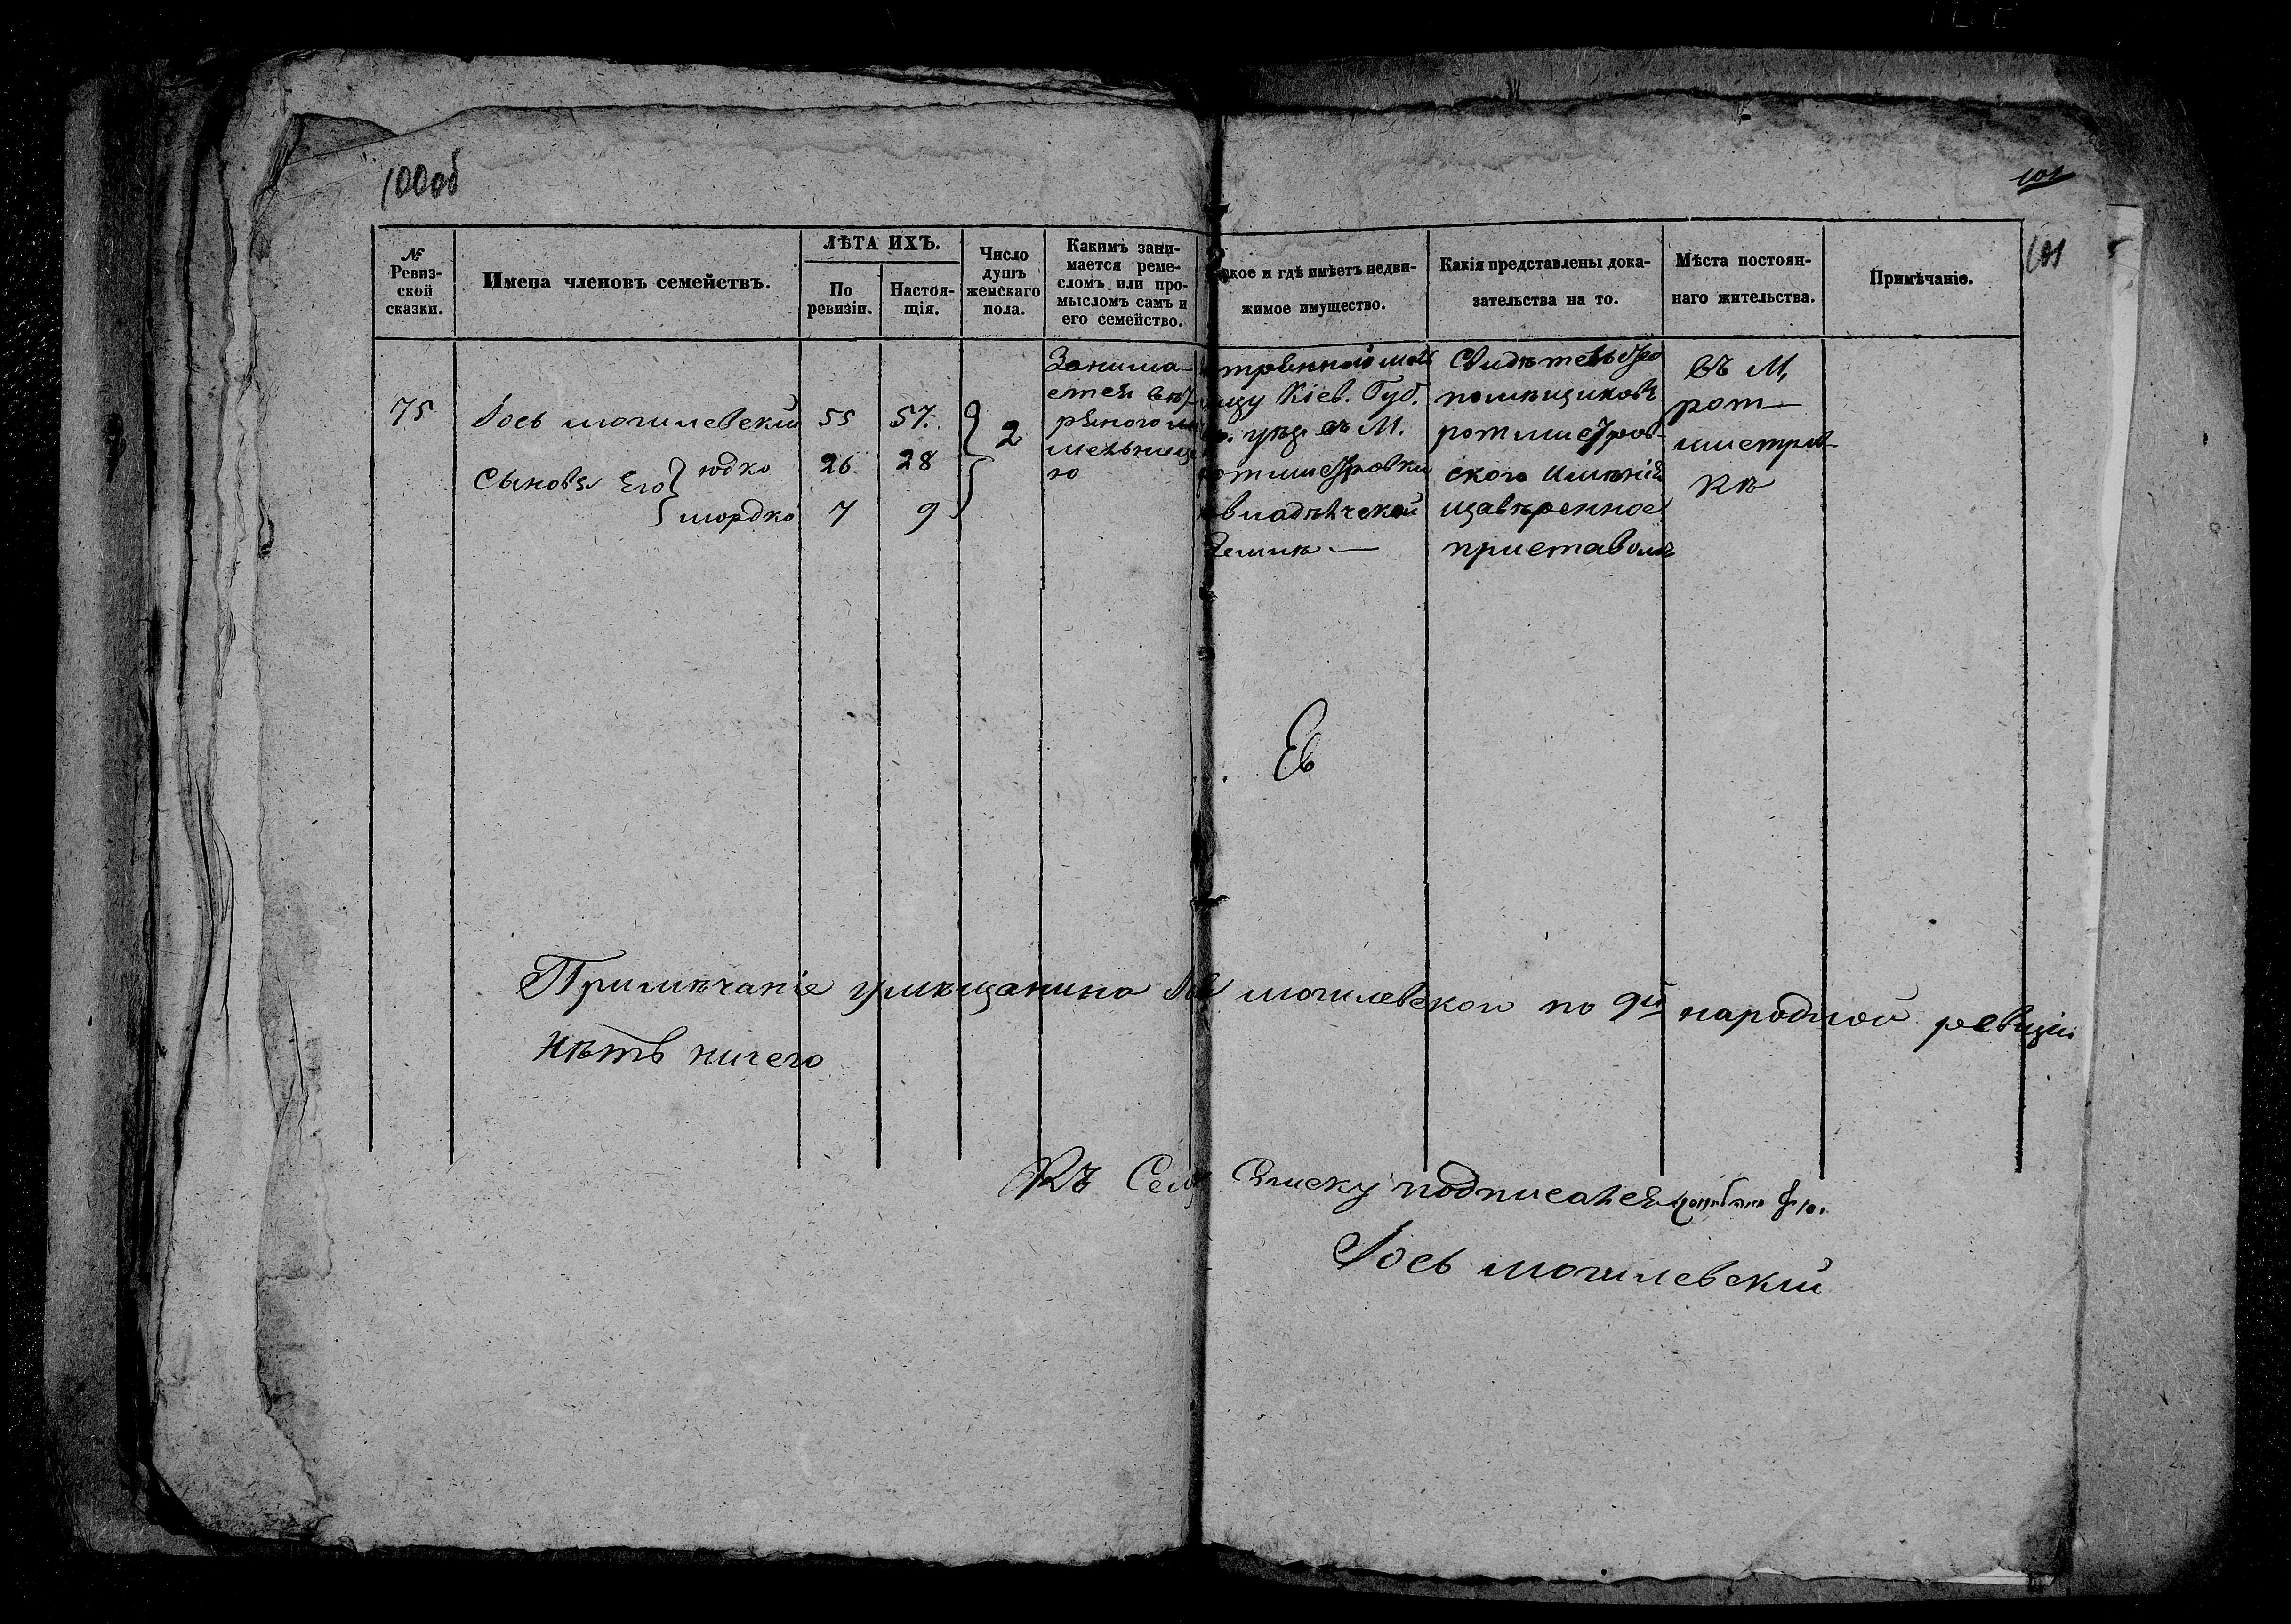 100об
101
101
№ Ревиз-
ской
сказки.
Имена членовъ семействъ.
ЛѢТА ИХЪ.
По
ревизіи.
Настоя-
щія.
Число
душъ
женскаго
пола.
Какимъ зани-
мается реме-
сломъ или про-
мысломъ самъ и
его семейство.
кое и гдѣ имѣетъ недви-
жимое имущество.
Какія представлены дока-
зательства на то.
Мѣста постоян-
наго жительства.
Примѣчаніе.
75
Іось могилевскій 55 57.
Сыновя Его юдко 26 28
мордко 7 9
2
Занима-
етея вѣт-
рѣного
мельниц
ю
Кіев. Губ.
уѣз. въ М.
ротмистровки
владѣлческой
Земли —
Свидѣтельство
помѣщиковъ
ротмистров-
ского имѣнія
приставомъ
въ М,
рот-
мистров-
кѣ
Ев
Примѣчаніе умѣщанина могилевского по 9й народной ревизіи
нѣтъ ничего
Къ Сему Списку подписался
Іось могилевскій